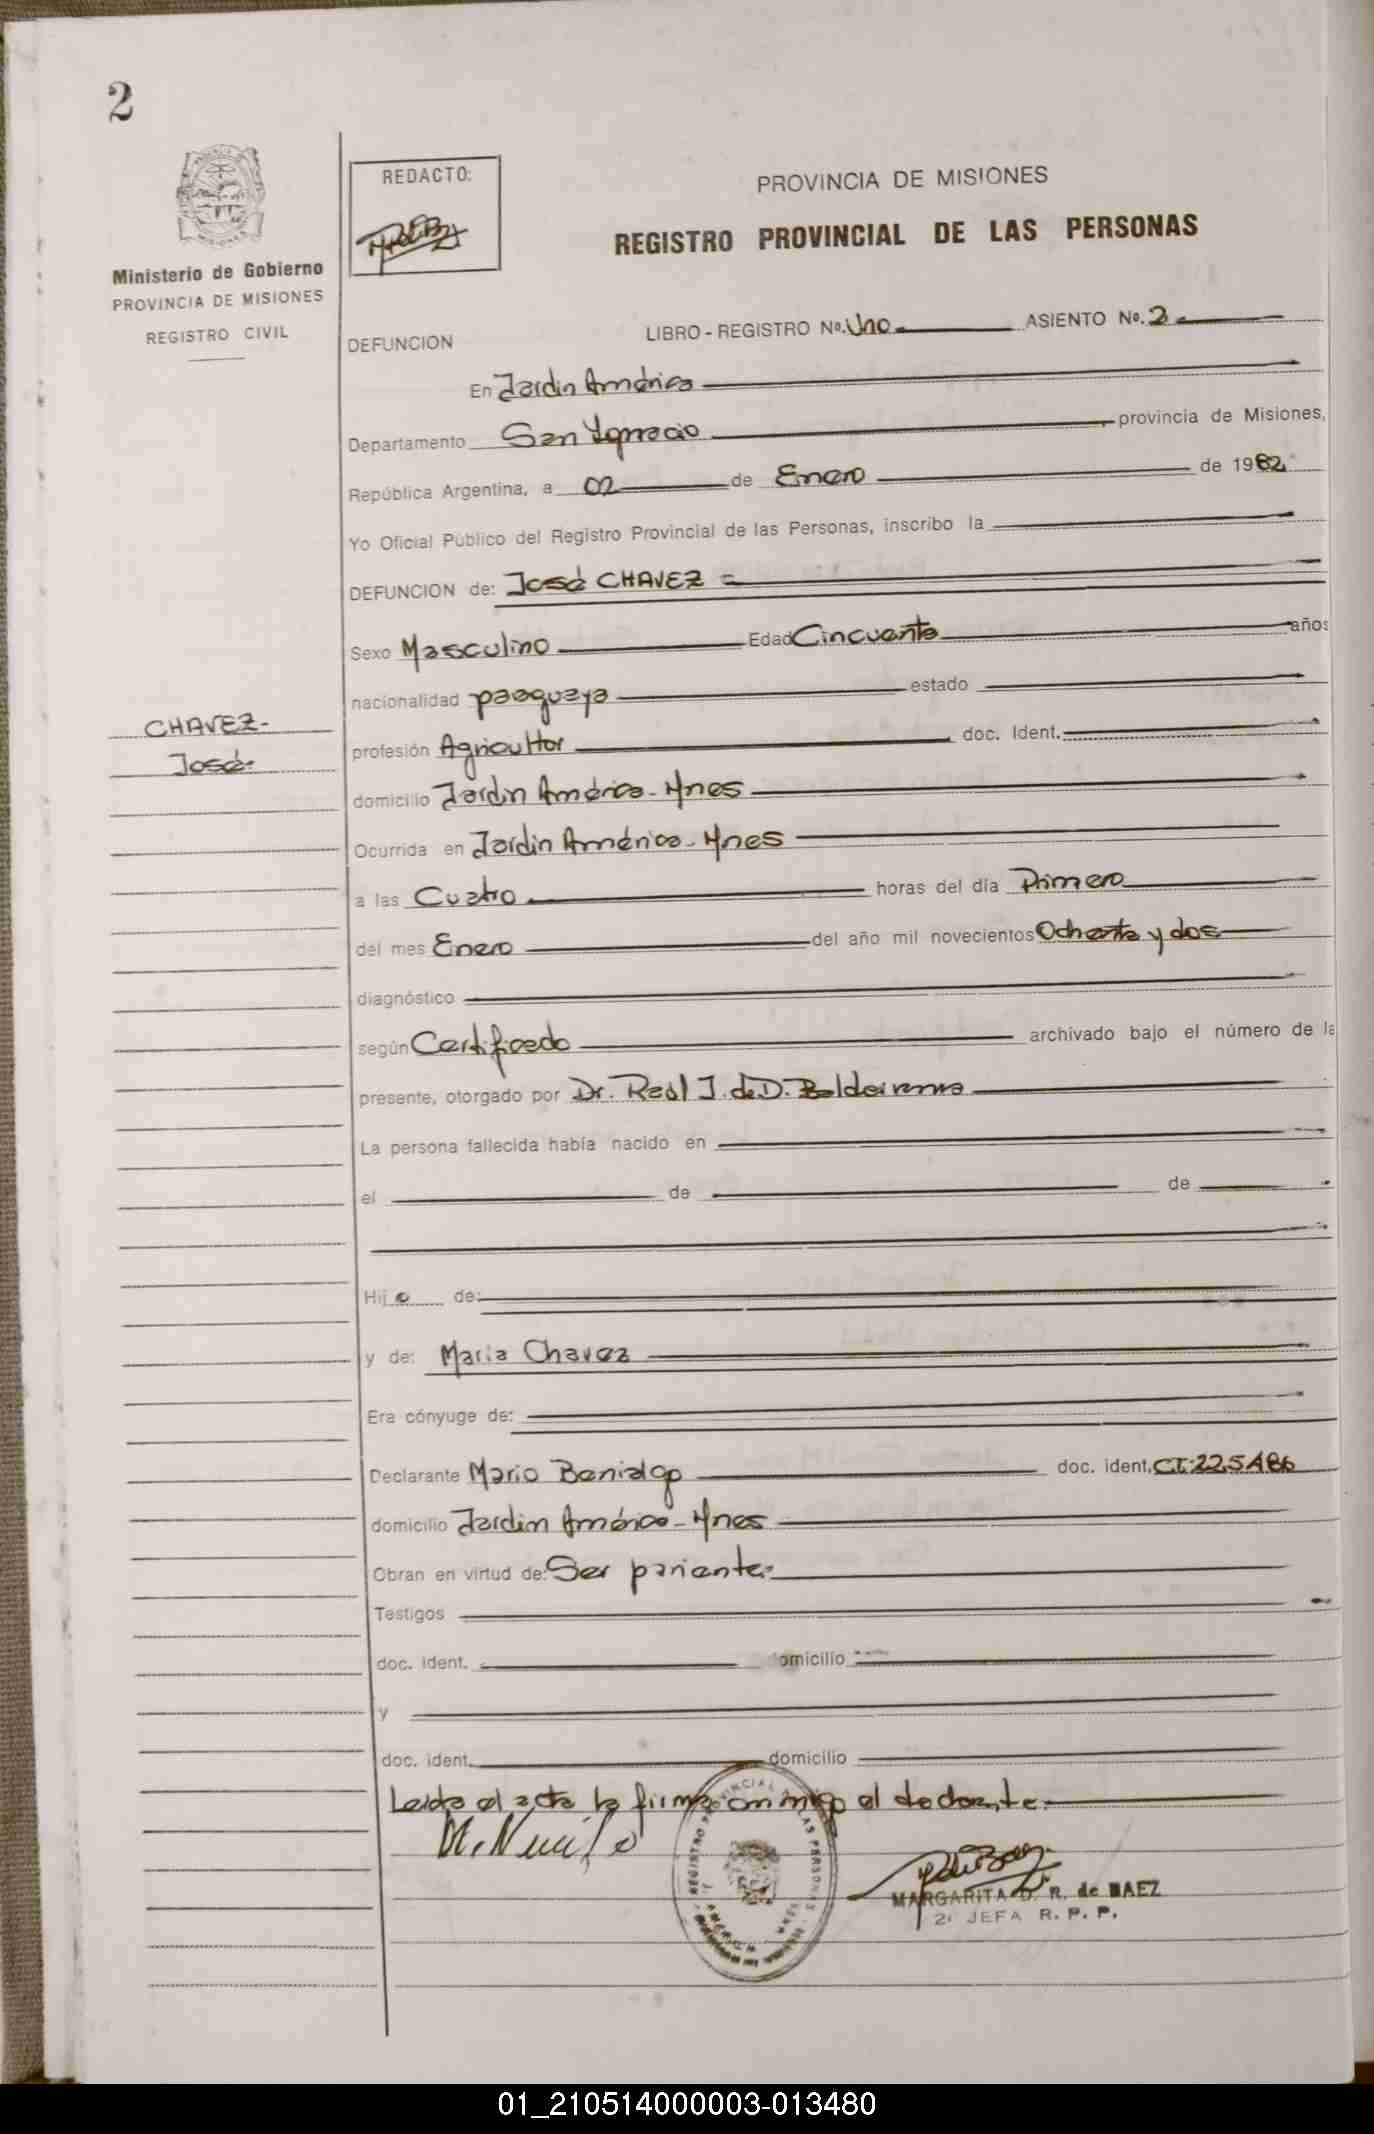 2
REDACTO:
PROVINCIA DE MISIONES
REGISTRO PROVINCIAL DE LAS PERSONAS
Ministerio de Gobierno
PROVINCIA DE MISIONES
REGISTRO CIVIL
DEFUNCION LIBRO - REGISTRO No. Uno ASIENTO No. 2
En Jardin América
Departamento San Ygnacio provincia de Misiones,
República Argentina, a 02 de Enero de 1982
Yo Oficial Público del Registro Provincial de las Personas, inscribo la
DEFUNCION de: José CHAVEZ =
Sexo Masculino Edad Cincuenta años
nacionalidad paaguaya estado
CHAVEZ-
José-
profesión Agricultor doc. Ident.
domicilio Jardin América - Mnes
Ocurrida en Jardin América - Mnes
a las Cuatro horas del día Primero
del mes Enero del año mil novecientos Ochenta y dos
diagnóstico
según Certificado archivado bajo el número de la
presente, otorgado por Dr. J. de D.
La persona fallecida había nacido en
el de de
Hijo de:
y de: Maria Chavez
Era cónyuge de:
Declarante Mario doc. ident. C.I. 225486
domicilio Jardin América - Mnes
Obran en virtud de: Ser pariente.
Testigos
doc. ident. omicilio
y
doc. ident. domicilio
Leida el acta la firma conmigo el declarante.
MARGARITA D. R. de BAEZ
2ª JEFA R. P. P.
01_210514000003-013480